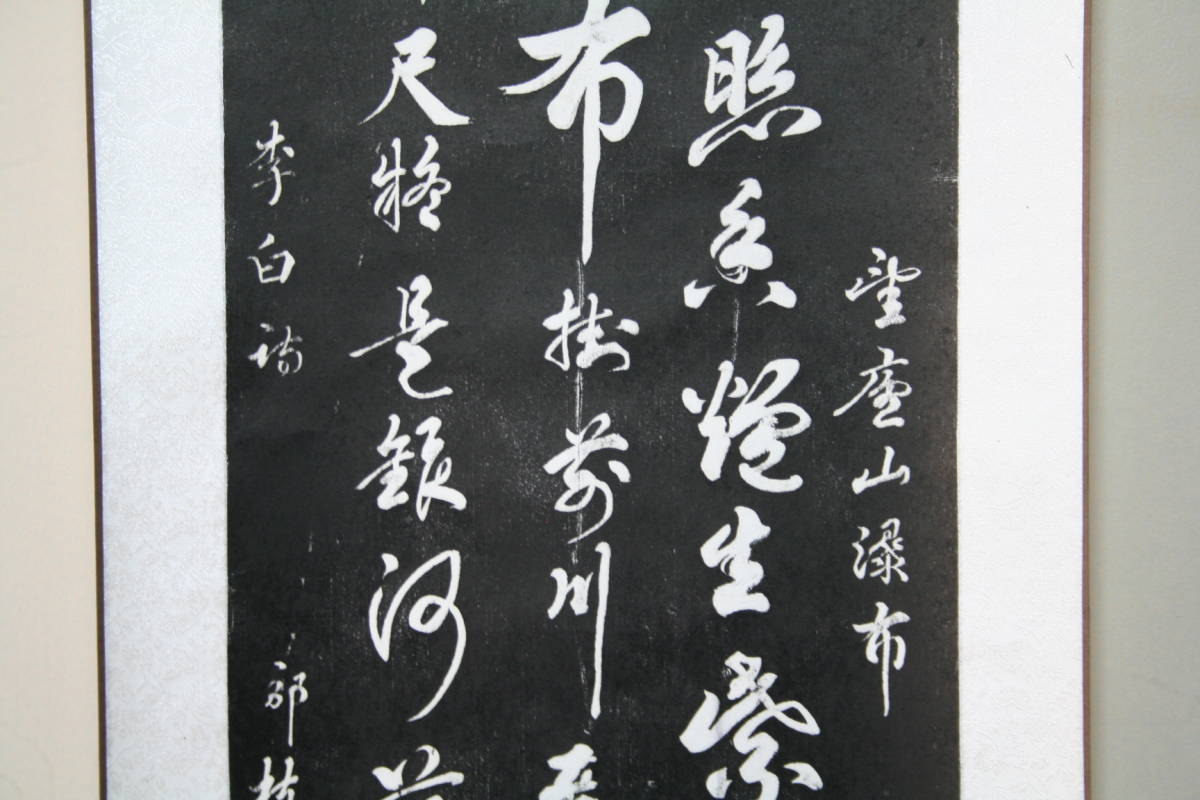 望廬山瀑布
照香爐生紫
布掛前川
尺疑是銀河
李白詩